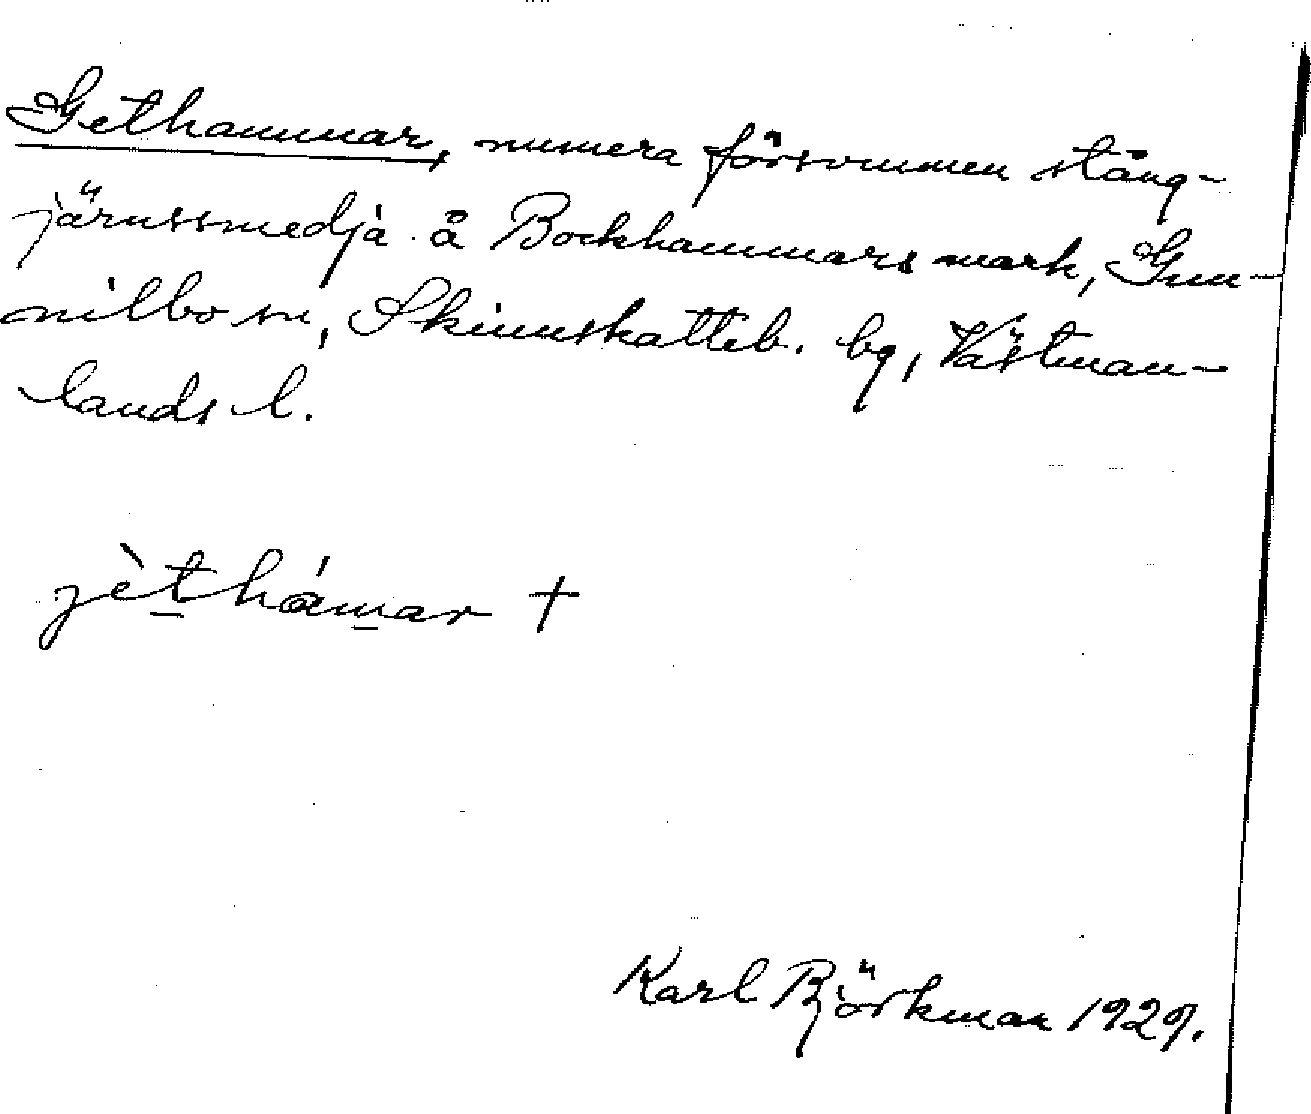 Gethammar, numera försvunnen stång-
järnssmedja å Bockhammars mark, Gun-
nilbo sn, Skinnskatteb. bg, Västman-
lands l.
jèt̲hám̲ar +
Karl Björkman 1929.